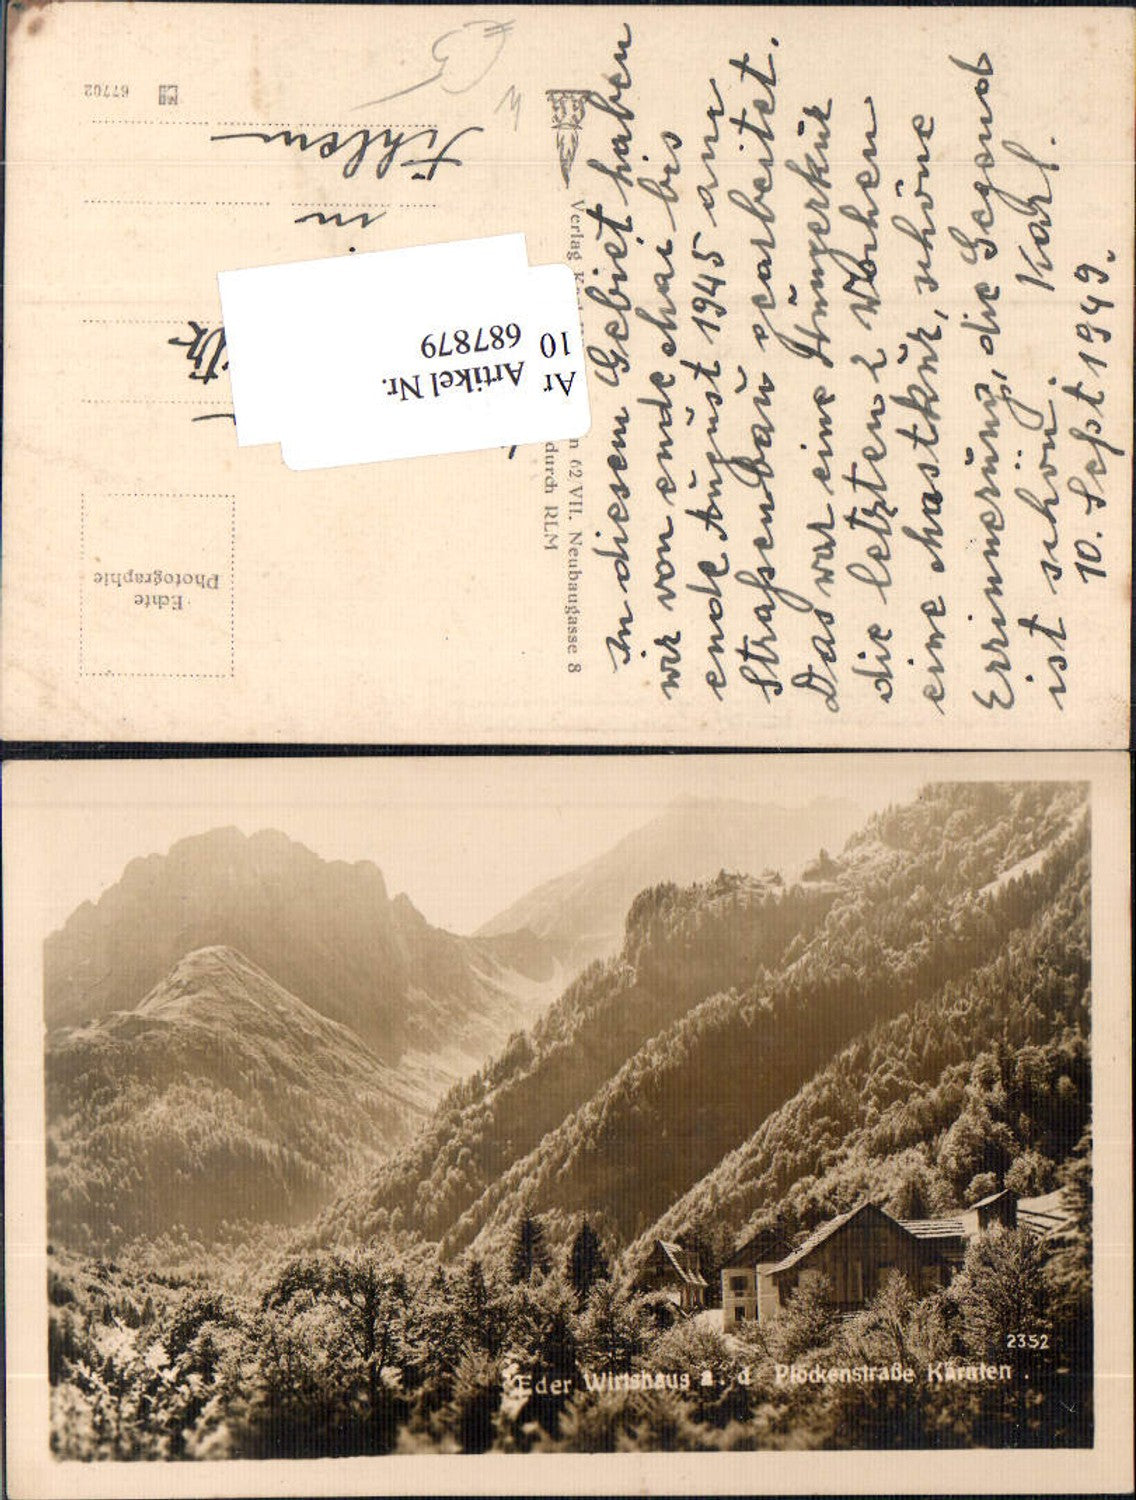 In diesem Gebiet haben
wir von ende Mai bis
ende August 1945 am
Straßenbau gearbeitet.
Das war eine Hungerkur
die letzten 2 Wochen
eine Mastkur, schöne
Errinnerung, die Gegend
ist schön. Karl.
10. Sept 1949.
Verlag
n 62/VII, Neubaugasse 8
durch RLM
Ar
10
Artikel Nr.
687879
in
67702
Echte
Photographie
2352
Eder Wirtshaus a. d Plöckenstraße Kärnten.